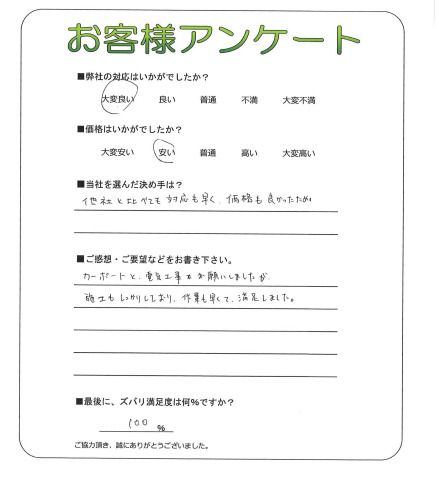 お客様アンケート
■弊社の対応はいかがでしたか？
大変良い 良い 普通 不満 大変不満
■価格はいかがでしたか？
大変安い 安い 普通 高い 大変高い
■当社を選んだ決め手は？
他社と比べても対応も早く、価格も良かったため
■ご感想・ご要望などをお書き下さい。
カーポートと、電気工事をお願いしましたが、
施工もしっかりしており、作業も早くて、満足しました。
■最後に、ズバリ満足度は何％ですか？
100 %
ご協力頂き、誠にありがとうございました。